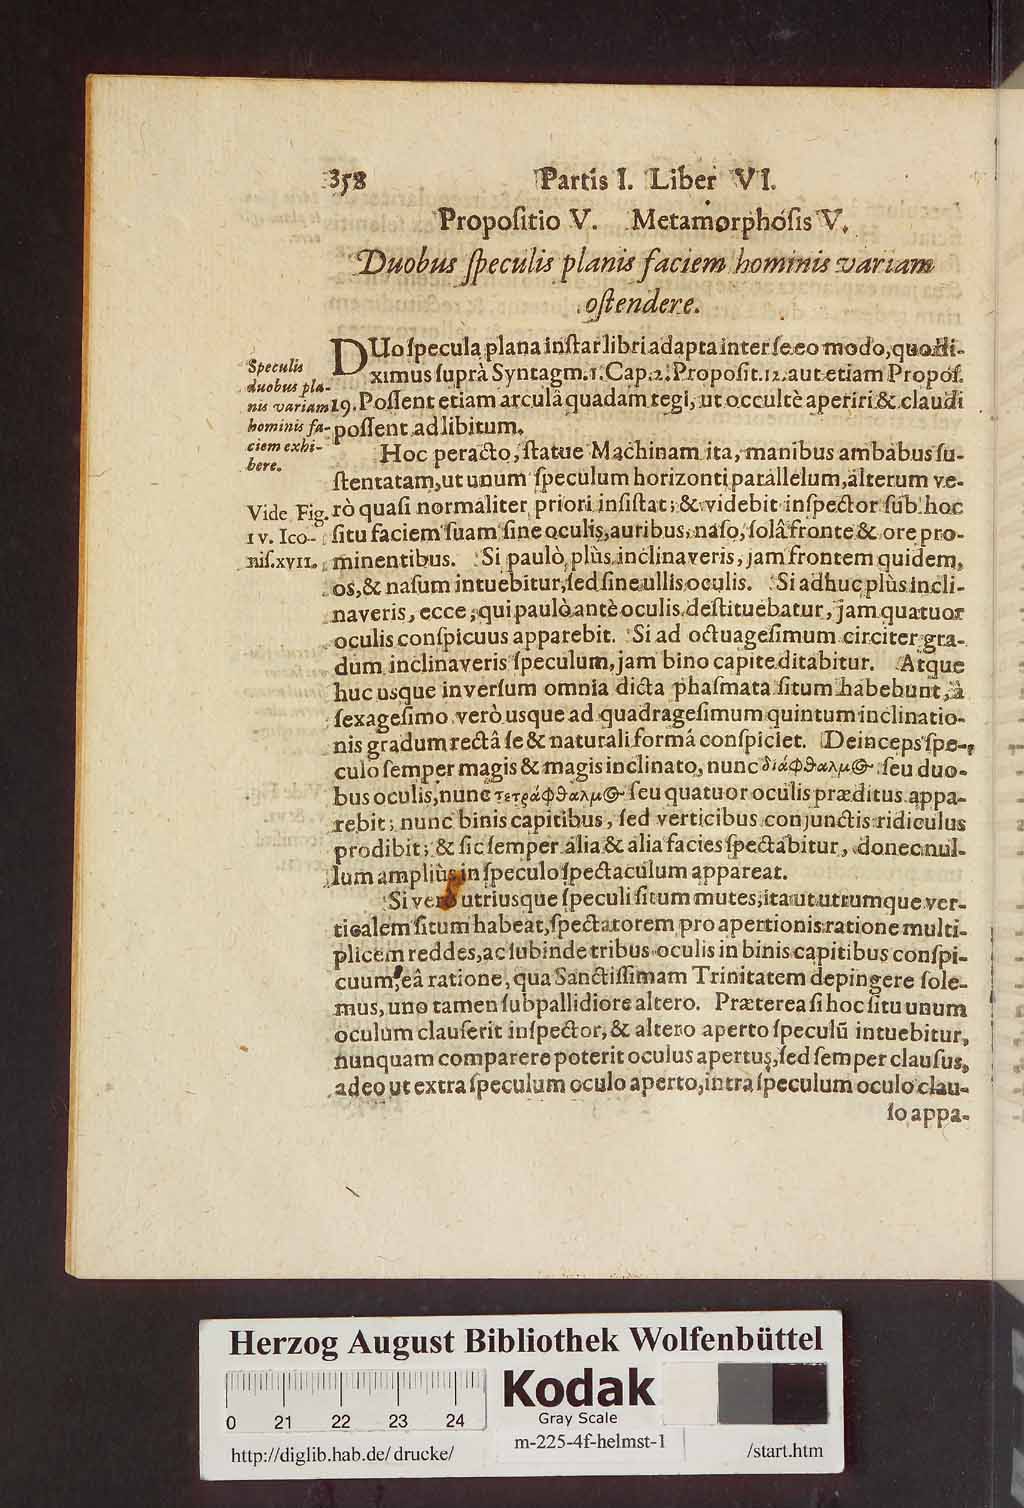 358 Partis I. Liber VI.
Propoſitio V. Metamorphóſis V.
Duobus ſpeculis planis faciem hominis variam
oſtendere.
Speculis
duobus pla-
nis variam
hominis fa-
ciem exhi-
bere.
DUo ſpecula plana inſtar libri adapta inter ſe eo modo, quo di-
ximus ſuprà Syntagm. 1. Cap. 2. Propoſit. 12. aut etiam Propoſ.
19. Poſſent etiam arculâ quadam tegi, ut occultè aperiri & claudi
poſſent ad libitum.
Hoc peracto, ſtatue Machinam ita, manibus ambabus ſu-
ſtentatam, ut unum ſpeculum horizonti parallelum, alterum ve-
Vide Fig.
IV. Ico-
niſ. XVII.
rò quaſi normaliter priori inſiſtat; & videbit inſpector ſub hoc
ſitu faciem ſuam ſine oculis, auribus, naſo, ſolâ fronte & ore pro-
minentibus. Si paulò plùs inclinaveris, jam frontem quidem,
os, & naſum intuebitur, ſed ſine ullis oculis. Si adhuc plùs incli-
naveris, ecce, qui paulò antè oculis deſtituebatur, jam quatuor
oculis conſpicuus apparebit. Si ad octuageſimum circiter gra-
dum inclinaveris ſpeculum, jam bino capite ditabitur. Atque
huc usque inverſum omnia dicta phaſmata ſitum habebunt, à
ſexageſimo verò usque ad quadrageſimum quintum inclinatio-
nis gradum rectâ ſe & naturali formâ conſpiciet. Deinceps ſpe-
culo ſemper magis & magis inclinato, nunc διάφθαλμ☉ ſeu duo-
bus oculis, nunc τετράφθαλμ☉ ſeu quatuor oculis præditus appa-
rebit; nunc binis capitibus, ſed verticibus conjunctis ridiculus
prodibit; & ſic ſemper alia & alia facies ſpectabitur, donec nul-
lum ampliùs in ſpeculo ſpectaculum appareat.
Si verò utriusque ſpeculi ſitum mutes, ita ut utrumque ver-
ticalem ſitum habeat, ſpectatorem pro apertionis ratione multi-
plicem reddes, ac ſubinde tribus oculis in binis capitibus conſpi-
cuum, eâ ratione, qua Sanctiſſimam Trinitatem depingere ſole-
mus, uno tamen ſubpallidiore altero. Præterea ſi hoc ſitu unum
oculum clauſerit inſpector, & altero aperto ſpeculũ intuebitur,
nunquam comparere poterit oculus apertus, ſed ſemper clauſus,
adeo ut extra ſpeculum oculo aperto, intrà ſpeculum oculo clau-
ſo appa-
Herzog August Bibliothek Wolfenbüttel
0 21 22 23 24
Kodak
Gray Scale
http://diglib.hab.de/drucke/ m-225-4f-helmst-1 /start.htm